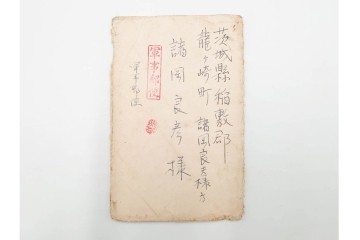 茨城縣稲敷郡
龍ヶ崎町 諸岡良吉様方
諸岡良彦様
軍事郵便